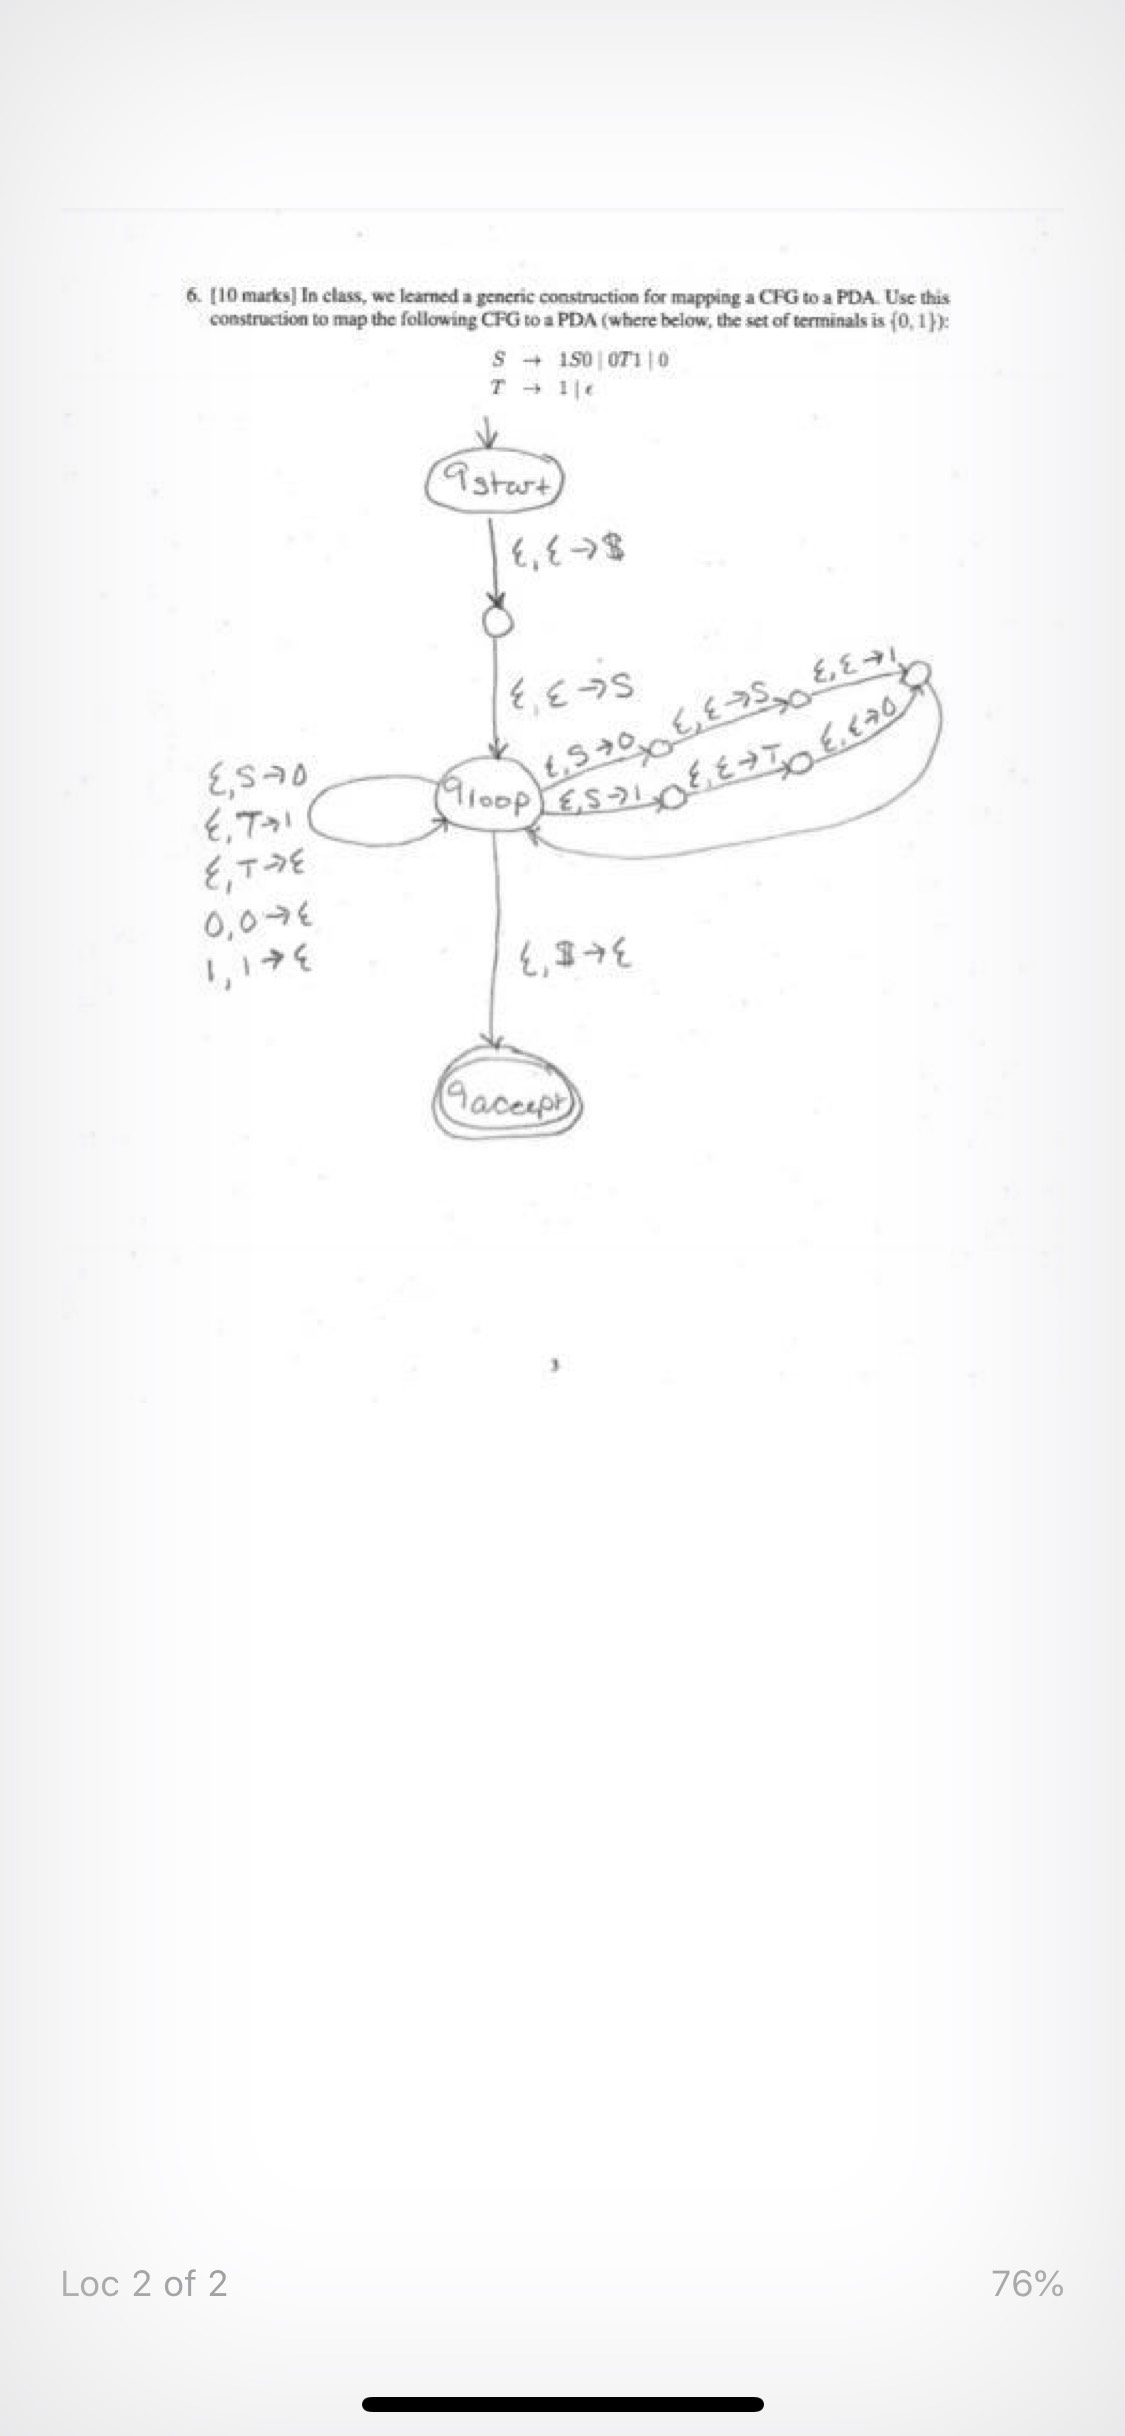 6. [10 marks] In class, we learned a generic construction for mapping a CFG to a PDA. Use this
construction to map the following CFG to a PDA (where below, the set of terminals is {0, 1}):
S → 1S0 | 0T1 | 0
T → 1 | ϵ
qstart
ε, ε → $
ε, ε → S
ε, S → 0
ε, ε → S
ε, ε → 1
ε, S → 1
ε, ε → T
ε, ε → 0
qloop
ε, S → 0
ε, T → 1
ε, T → ε
0, 0 → ε
1, 1 → ε
ε, $ → ε
qaccept
3
Loc 2 of 2
76%